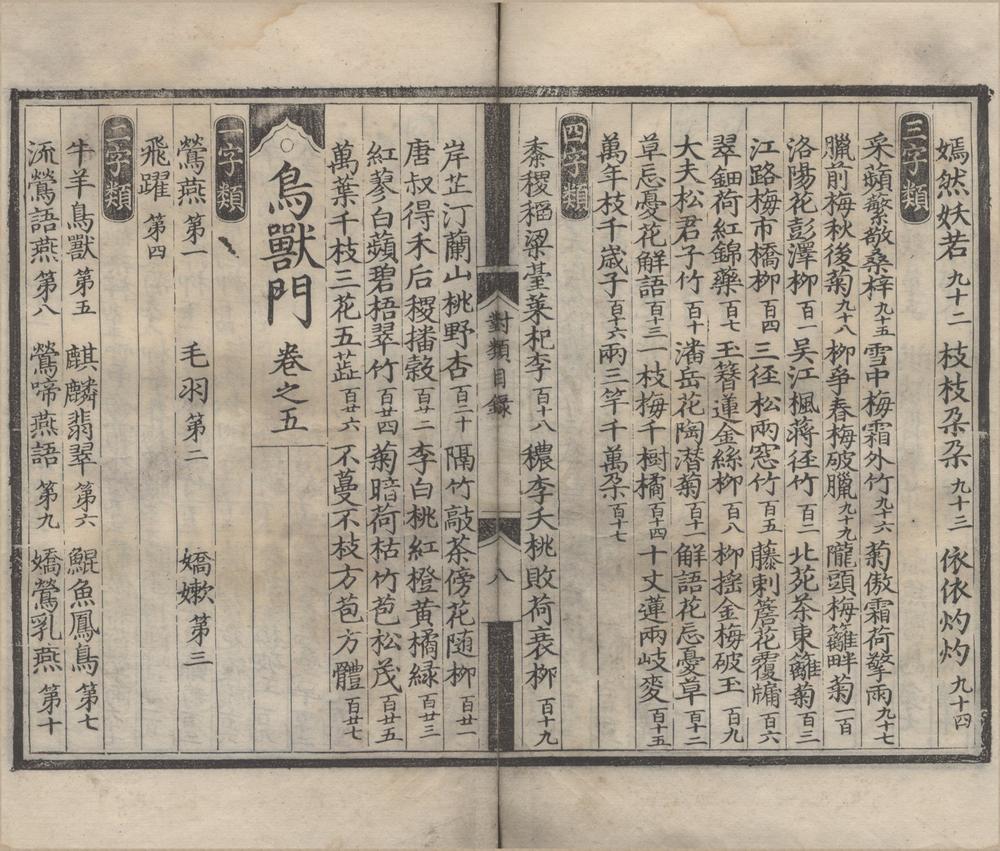 嫣然妖若 九十二 枝枝朶朶 九十三 依依灼灼 九十四
三字類
采蘋蘩敬桑梓 九十五 雪中梅霜外竹 九十六 菊傲霜荷擎雨 九十七
臘前梅秋後菊 九十八 柳爭春梅破臘 九十九 隴頭梅籬畔菊 一百
洛陽花彭澤柳 百一 吳江楓蔣徑竹 百二 北苑茶東籬菊 百三
江路梅市橋柳 百四 三徑松兩窓竹 百五 藤刺簷花覆牗 百六
翠鈿荷紅錦藥 百七 玉簪蓮金絲柳 百八 柳搖金梅破玉 百九
大夫松君子竹 百十 潘岳花陶潜菊 百十一 解語花忘憂草 百十二
草忘憂花解語 百十三 一枝梅千樹橘 百十四 十丈蓮兩岐麥 百十五
萬年枝千歲子 百十六 兩三竿千萬朶 百十七
四字類
黍稷稻粱臺萊杞李 百十八 穠李夭桃敗荷衰柳 百十九
岸芷汀蘭山桃野杏 百二十 隔竹敲茶傍花随柳 百廿一
唐叔得禾后稷播穀 百廿二 李白桃紅橙黄橘緑 百廿三
紅蓼白蘋碧梧翠竹 百廿四 菊暗荷枯竹苞松茂 百廿五
萬葉千枝三花五蕋 百廿六 不蔓不枝方苞方體 百廿七
對類目錄
八
鳥獸門 卷之五
一字類
鶯燕 第一 毛羽 第二 嬌嫰 第三
飛躍 第四
二字類
牛羊鳥獸 第五 麒麟翡翠 第六 鯤魚鳳鳥 第七
流鶯語燕 第八 鶯啼燕語 第九 嬌鶯乳燕 第十